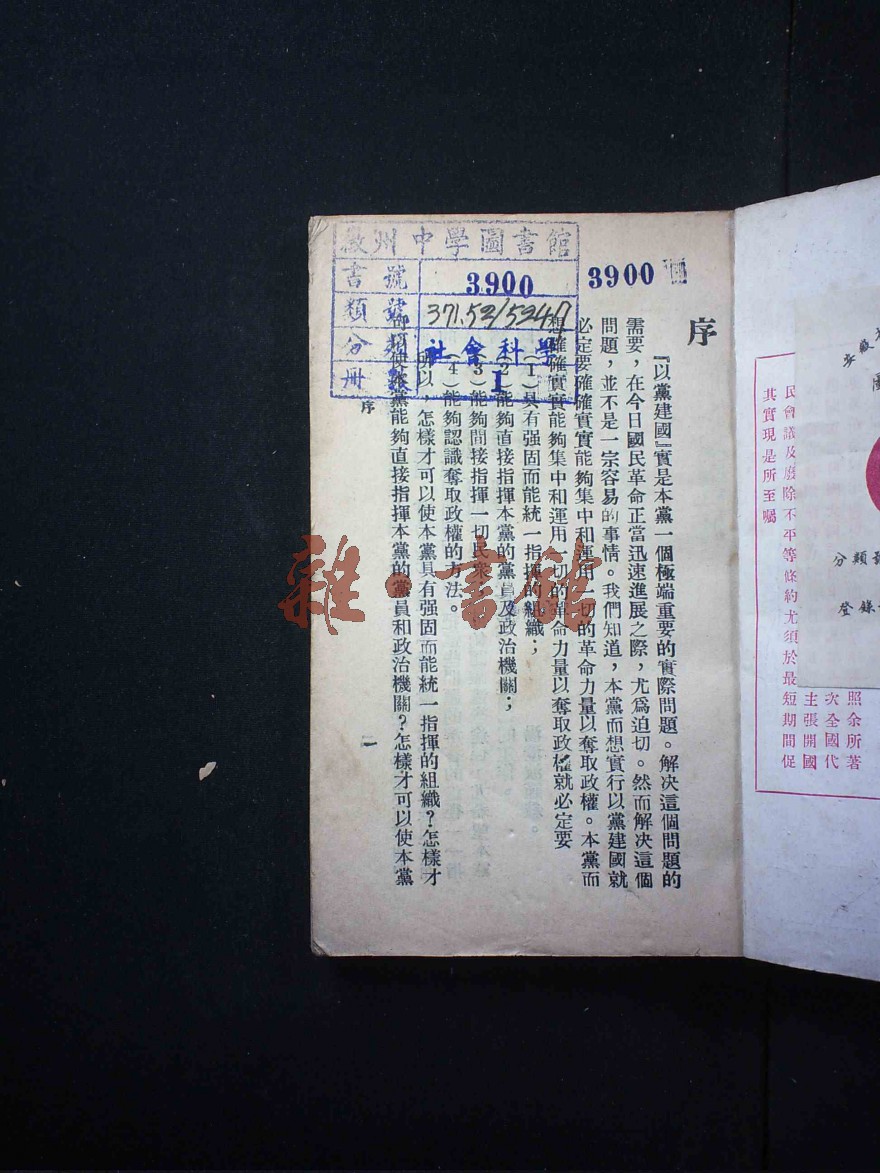 民會議及廢除不平等條約尤須於最短期間促
其實現是所至囑
照余所著
次全國代
主張開國
分類
登錄
徽州中學圖書館
書號 3900
類號 371.52/5247
分類 社會科學
冊數 1
3900
序
『以黨建國』實是本黨一個極端重要的實際問題。解決這個問題的
需要，在今日國民革命正當迅速進展之際，尤爲迫切。然而解決這個
問題，並不是一宗容易的事情。我們知道，本黨而想實行以黨建國就
必定要確確實實能夠集中和運用一切的革命力量以奪取政權。本黨而
想確確實實能夠集中和運用一切的革命力量以奪取政權就必定要
（1）具有强固而能統一指揮的組織；
（2）能夠直接指揮本黨的黨員及政治機關；
（3）能夠間接指揮一切民衆；
（4）能夠認識奪取政權的方法。
所以，怎樣才可以使本黨具有强固而能統一指揮的組織？怎樣才
可以使本黨能夠直接指揮本黨的黨員和政治機關？怎樣才可以使本黨
序
一
雜·書館